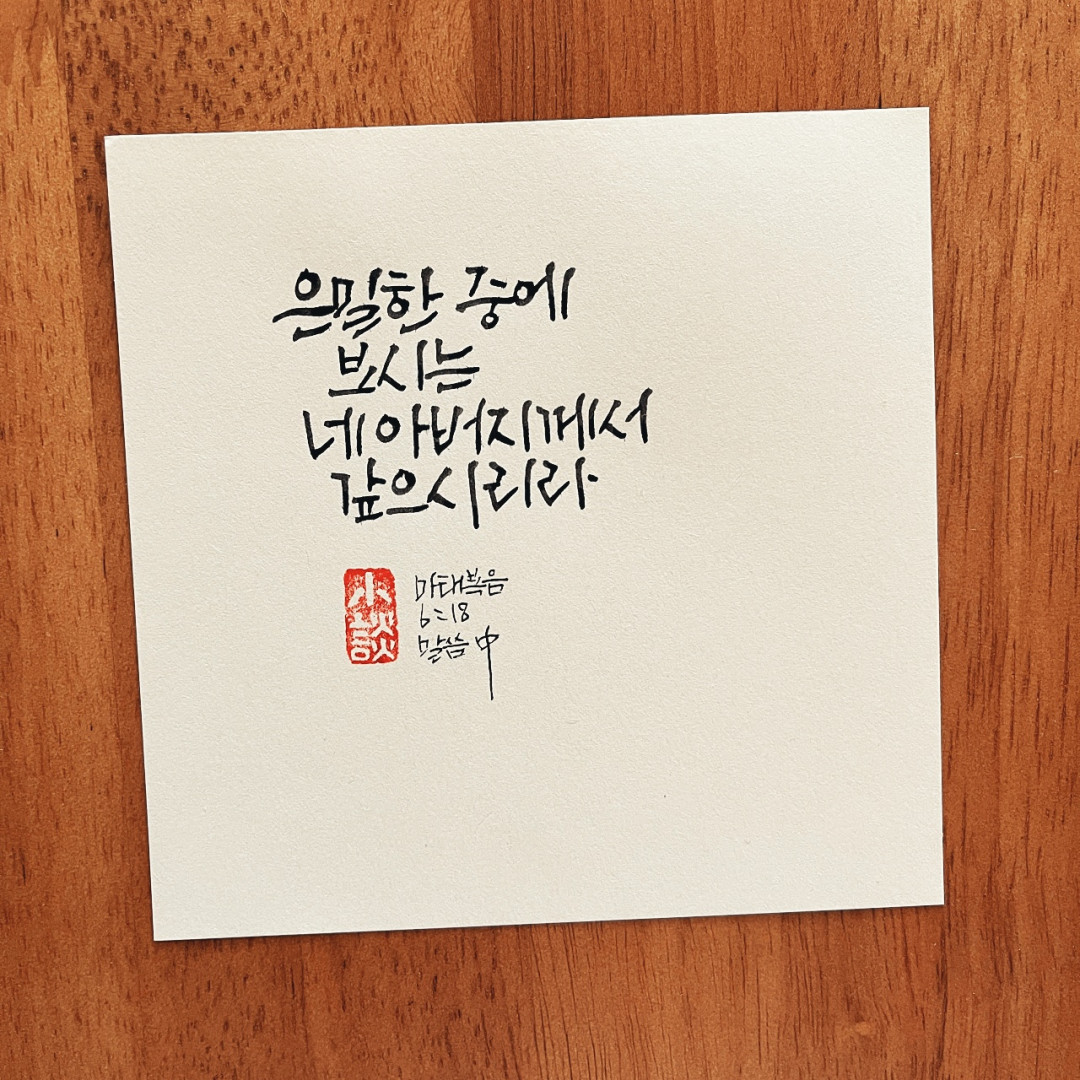 은밀한 중에
보시는
네 아버지께서
갚으시리라
小談
마태복음
6:18
말씀 中